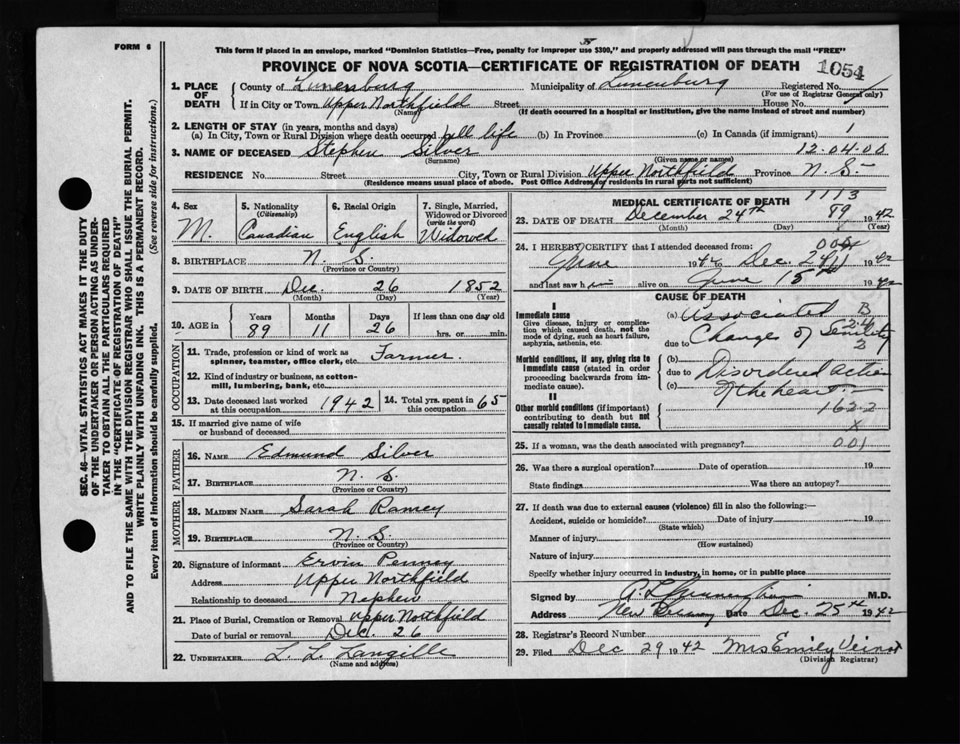 FORM 6
This form if placed in an envelope, marked "Dominion Statistics—Free, penalty for improper use $300," and properly addressed will pass through the mail "FREE"
PROVINCE OF NOVA SCOTIA—CERTIFICATE OF REGISTRATION OF DEATH
1054
1. PLACE OF DEATH County of Lunenburg Municipality of Lunenburg Registered No.
(For use of Registrar General only)
If in City or Town Upper Northfield Street House No.
(Name) (If death occurred in a hospital or institution, give the name instead of street and number)
2. LENGTH OF STAY (in years, months and days)
(a) In City, Town or Rural Division where death occurred all life (b) In Province (c) In Canada (if immigrant) 1
3. NAME OF DECEASED Stephen Silver 12.04.00
(Surname) (Given name or names)
RESIDENCE No. Street City, Town or Rural Division Upper Northfield Province N.S.
(Residence means usual place of abode. Post Office Address for residents in rural parts not sufficient)
4. Sex M.
5. Nationality (Citizenship) Canadian
6. Racial Origin English
7. Single, Married, Widowed or Divorced (write the word) Widowed
8. BIRTHPLACE N. S.
(Province or Country)
9. DATE OF BIRTH Dec. 26 1852
(Month) (Day) (Year)
10. AGE in Years 89 Months 11 Days 26 If less than one day old hrs. or min.
OCCUPATION
11. Trade, profession or kind of work as spinner, teamster, office clerk, etc. Farmer.
12. Kind of industry or business, as cotton-mill, lumbering, bank, etc.
13. Date deceased last worked at this occupation 1942
14. Total yrs. spent in this occupation 65
15. If married give name of wife or husband of deceased
FATHER
16. NAME Edmund Silver
17. BIRTHPLACE N. S.
(Province or Country)
MOTHER
18. MAIDEN NAME Sarah Ramey
19. BIRTHPLACE N. S.
(Province or Country)
20. Signature of informant Ervin Penny
Address Upper Northfield
Relationship to deceased Nephew
21. Place of Burial, Cremation or Removal Upper Northfield
Date of burial or removal Dec. 26
22. UNDERTAKER L. L. Langille
(Name and address)
MEDICAL CERTIFICATE OF DEATH
1113
89
23. DATE OF DEATH December 24th 1942
(Month) (Day) (Year)
24. I HEREBY CERTIFY that I attended deceased from:
June 1942 to Dec. 24th 1942
and last saw h im alive on June 15th 1942
CAUSE OF DEATH
I
Immediate cause
Give disease, injury or complication which caused death, not the mode of dying, such as heart failure, asphyxia, asthenia, etc.
(a) Associated
due to Changes of Senility
Morbid conditions, if any, giving rise to immediate cause (stated in order proceeding backwards from immediate cause).
(b)
due to Disordered Action
(c) of the heart
II
Other morbid conditions (if important) contributing to death but not causally related to immediate cause.
1622
x
001
25. If a woman, was the death associated with pregnancy?
26. Was there a surgical operation? Date of operation 19
State findings Was there an autopsy?
27. If death was due to external causes (violence) fill in also the following:—
Accident, suicide or homicide? Date of injury 19
(State which)
Manner of injury
(How sustained)
Nature of injury
Specify whether injury occurred in industry, in home, or in public place
Signed by M.D.
Address New Germany Date Dec. 25th 1942
28. Registrar's Record Number
29. Filed Dec 29 1942 Mrs Emily Veinot
(Division Registrar)
SEC. 46—VITAL STATISTICS ACT MAKES IT THE DUTY
OF THE UNDERTAKER OR PERSON ACTING AS UNDERTAKER TO OBTAIN ALL THE PARTICULARS REQUIRED
IN THE "CERTIFICATE OF REGISTRATION OF DEATH"
AND TO FILE THE SAME WITH THE DIVISION REGISTRAR WHO SHALL ISSUE THE BURIAL PERMIT.
WRITE PLAINLY WITH UNFADING INK. THIS IS A PERMANENT RECORD.
Every item of Information should be carefully supplied. (See reverse side for instructions.)